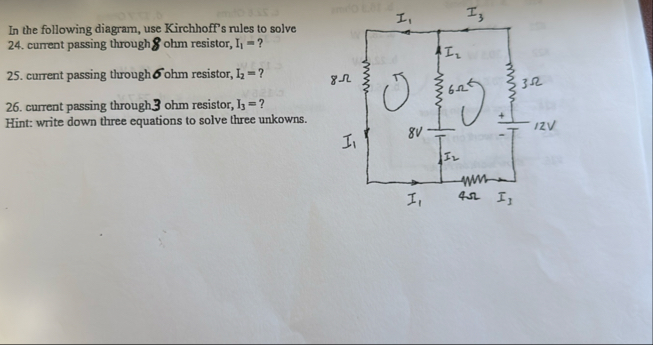 In the following diagram, use Kirchhoff's rules to solve
24. current passing through 8 ohm resistor, I₁ = ?
25. current passing through 6 ohm resistor, I₂ = ?
26. current passing through 3 ohm resistor, I₃ = ?
Hint: write down three equations to solve three unkowns.
I₁
I₃
I₂
8Ω
6Ω
3Ω
+
8V
-
12V
I₁
I₂
I₁
4Ω
I₃